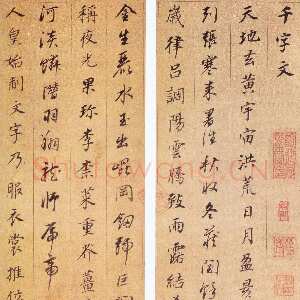 千字文
天地玄黃宇宙洪荒日月盈昃
列張寒来暑往秋收冬藏閏餘
歲律呂調陽雲騰致雨露結
金生麗水玉出崐岡劍號巨
稱夜光果珍李柰菜重芥薑
河淡鱗潛羽翔龍師火帝
人皇始制文字乃服衣裳推位